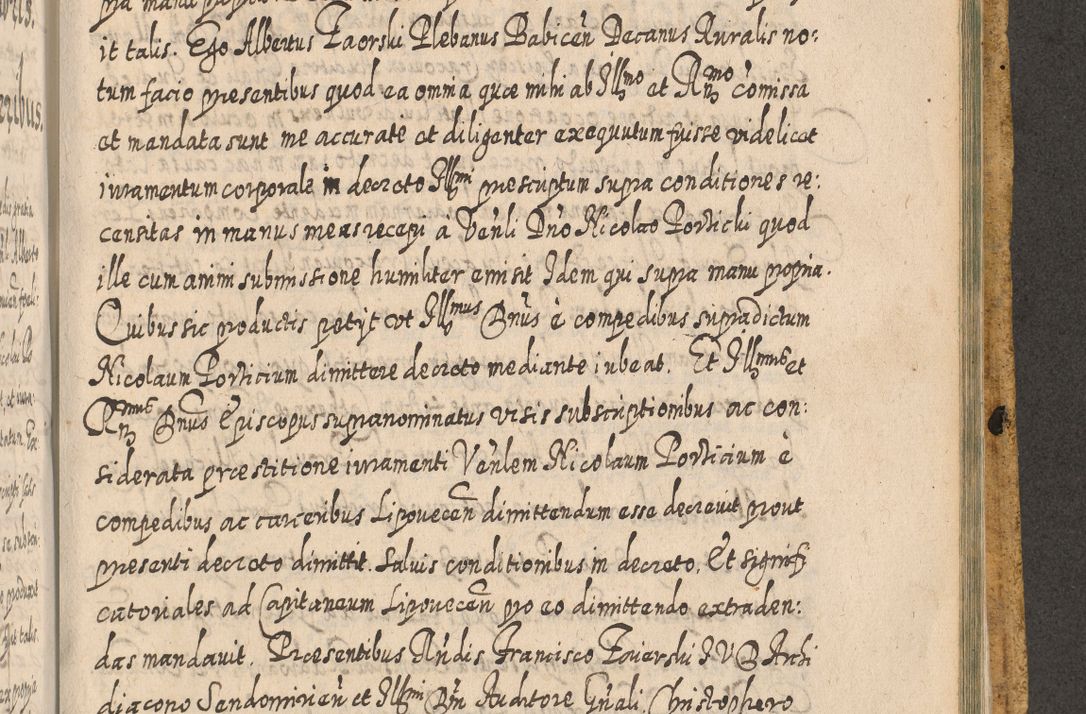 it talis. Ego Albertus Zaorski Plebanus Babicen̄ Decanus Ruralis no:
tum facio præsentibus quod ea omnia quæ mihi ab Illmo et Rmo comissa
et mandata sunt me accurate et diligenter exequutum fuisse videlicet
iuramentum corporale in decreto Illmi prescriptum supra conditiones re:
censitas in manus meas recepi à Venli Dno Nicolao Porticki quod
ille cum animi submissione humiliter emisit Idem qui supra manu propria.
Quibus sic productis petijt vt Illmus Dnus è compedibus supradictum
Nicolaum Porticium dimittere decreto mediante iubeat. Et Illmus et
Rmus Dnus Episcopus supranominatus visis subscriptionibus ac con:
siderata præstitione iuramenti Venlem Nicolaum Porticium è
compedibus ac carceribus Lipouecen̄ dimittendum esse decreuit prout
presenti decreto dimittit. Saluis conditionibus in decreto. Et signifi
catoriales ad Capitaneum Lipouecen̄ pro eo dimittendo extraden:
das mandauit. Præsentibus Rndis Francisco Zoierski I V D Archi
diacono Sendomirien̄ et Illmi Dni Auditore Gnali, Christophero